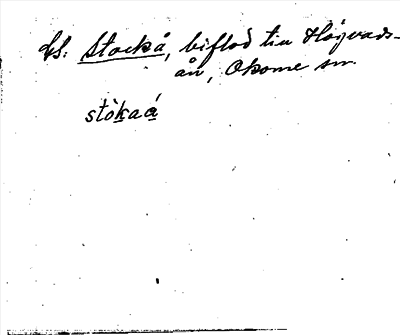 Gs: Stockå, biflod till Högvads-
ån, Okome sn.
stòkaá